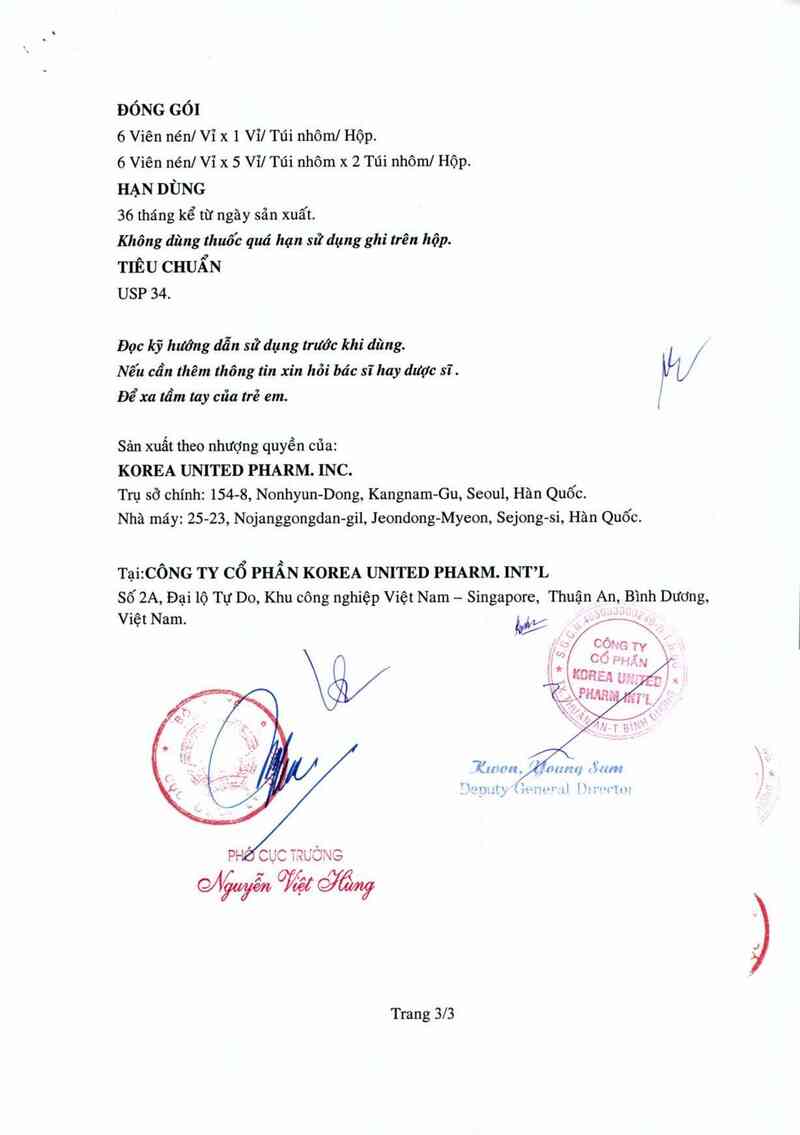 ĐÓNG GÓI
6 Viên nén/ Vỉ x 1 Vỉ/ Túi nhôm/ Hộp.
6 Viên nén/ Vỉ x 5 Vỉ/ Túi nhôm x 2 Túi nhôm/ Hộp.
HẠN DÙNG
36 tháng kể từ ngày sản xuất.
Không dùng thuốc quá hạn sử dụng ghi trên hộp.
TIÊU CHUẨN
USP 34.
Đọc kỹ hướng dẫn sử dụng trước khi dùng.
Nếu cần thêm thông tin xin hỏi bác sĩ hay dược sĩ .
Để xa tầm tay của trẻ em.
Sản xuất theo nhượng quyền của:
KOREA UNITED PHARM. INC.
Trụ sở chính: 154-8, Nonhyun-Dong, Kangnam-Gu, Seoul, Hàn Quốc.
Nhà máy: 25-23, Nojanggongdan-gil, Jeondong-Myeon, Sejong-si, Hàn Quốc.
Tại:CÔNG TY CỔ PHẦN KOREA UNITED PHARM. INT'L
Số 2A, Đại lộ Tự Do, Khu công nghiệp Việt Nam – Singapore, Thuận An, Bình Dương,
Việt Nam.
CÔNG TY
CỔ PHẦN
KOREA UNITED
PHARM INT'L
TX.THUẬN AN-T BÌNH DƯƠNG
Kwon, Young Sum
Deputy General Director
PHÓ CỤC TRƯỞNG
Nguyễn Việt Hùng
Trang 3/3